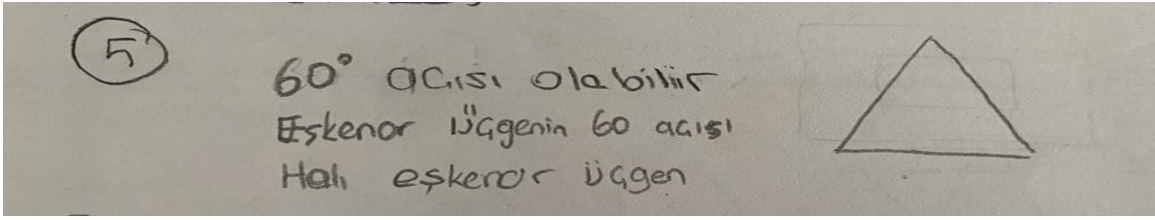 5
60° açısı olabilir
Eşkenar üçgenin 60 açısı
Halı eşkenar üçgen